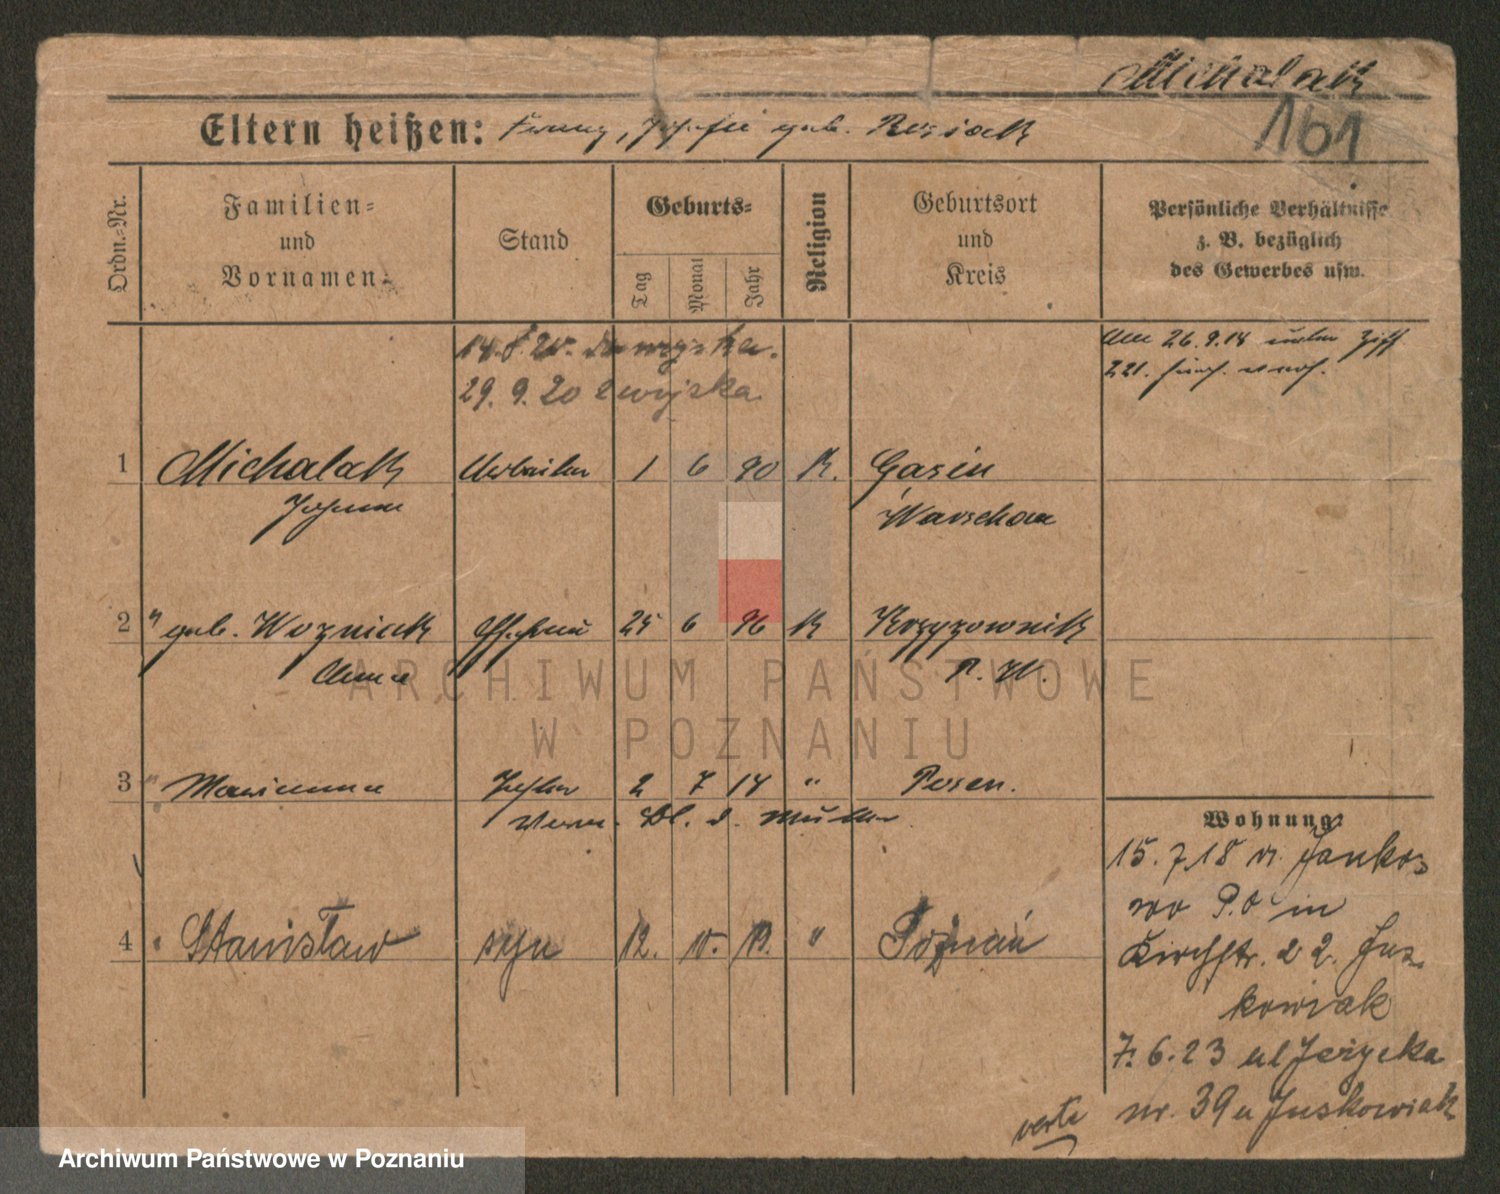 Michalak
161
Eltern heißen: Franz, Josefa geb. Rosiak
Ordn.-Nr.
Familien-
und
Vornamen
Stand
Geburts-
Tag
Monat
Jahr
Religion
Geburtsort
und
Kreis
Persönliche Verhältnisse
z. B. bezüglich
des Gewerbes usw.
14.8.20. do wojska.
29.9.20 z wojska.
Am 26.9.14 unter Ziff
221.
1 Michalak Arbeiter 1 6 90 K. Gasin
Johann Warschau
2 " geb. Wozniak Ehefrau 25 6 96 K Krzyzownik
Anna P. W.
3 " Marianna Tochter 2 7 14 " Posen.
Verm. Bl. d. Mutter
4 " Stanisław syn 12. 10. 19. " Poznań
Wohnung:
15.7.18 v. Jankowo P.O in
Kirchstr. 22. Jus-
kowiak
7.6.23 ul Jeżycka
nr. 39 u Juskowiak
verte
ARCHIWUM PAŃSTWOWE
W POZNANIU
Archiwum Państwowe w Poznaniu